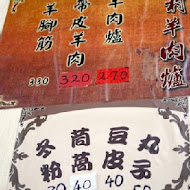 利羊肉爐
羊肉爐 270
帶皮羊肉 320
羊腳筋 330
丸子
豆皮 40
茼蒿 40
冬粉